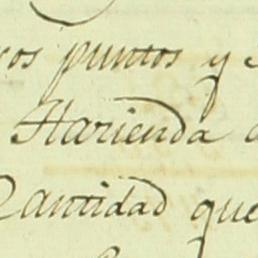 ros puntos y
Hazienda
Cantidad que